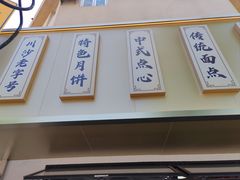 川沙老字号
特色月饼
中式点心
传统面点